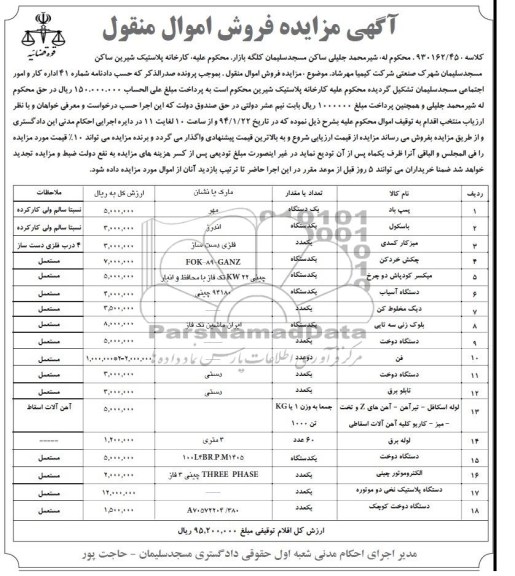 آگهی مزایده فروش اموال منقول
قوه قضائیه
کلاسه ۹۳۰۱۶۲/۴۵۰ . محکوم له: شیرمحمد جلیلی ساکن مسجدسلیمان کلگه بازار. محکوم علیه: کارخانه پلاستیک شیرین ساکن
مسجدسلیمان شهرک صنعتی شرکت کیمیا مهرشاد. موضوع : مزایده فروش اموال منقول . بموجب پرونده صدرالذکر که حسب دادنامه شماره ۴۱ اداره کار و امور
اجتماعی مسجدسلیمان تشکیل گردیده محکوم علیه کارخانه پلاستیک شیرین محکوم است به پرداخت مبلغ علی الحساب ۱۵۰.۰۰۰.۰۰۰ ریال در حق محکوم
له شیرمحمد جلیلی و همچنین پرداخت مبلغ ۱۰۰۰۰۰۰ ریال بابت نیم عشر دولتی در حق صندوق دولت که این اجرا حسب درخواست و معرفی خواهان و با نظر
ارزیاب منتخب اقدام به توقیف اموال محکوم علیه بشرح ذیل نموده که در تاریخ ۹۴/۱/۲۲ و از ساعت ۱۰ لغایت ۱۱ در دایره اجرایی احکام مدنی این دادگستری
و از طریق مزایده بفروش می رساند مزایده از قیمت ارزیابی شروع و به بالاترین قیمت پیشنهادی واگذار می گردد و برنده مزایده می تواند ۱۰٪ قیمت مورد مزایده
را فی المجلس و الباقی آنرا ظرف یکماه پس از آن تودیع نماید در غیر اینصورت مبلغ تودیعی پس از کسر هزینه های مزایده به نفع دولت ضبط و مزایده تجدید
خواهد شد ضمنا خریداران می توانند ۵ روز قبل از موعد مقرر در این اجرا حاضر تا ترتیب بازدید آنان از اموال مورد مزایده داده شود.
ردیف نام کالا تعداد یا مقدار مارک یا نشان ارزش کل به ریال ملاحظات
۱ پمپ باد یک دستگاه مهر ۵,۰۰۰,۰۰۰ نسبتا سالم ولی کارکرده
۲ باسکول یکدستگاه اندرز ۳,۰۰۰,۰۰۰ نسبتا سالم ولی کارکرده
۳ میزکار کمدی یکعدد فلزی دست ساز ۳,۰۰۰,۰۰۰ ۴ درب فلزی دست ساز
۴ چکش خردکن یکدستگاه FOK-۸۹-GANZ ۷,۰۰۰,۰۰۰ مستعمل
۵ میکسر کودپاش دو چرخ یکدستگاه چینی ۲۲ KW تک فاز با محافظ و انبار ۵,۰۰۰,۰۰۰ مستعمل
۶ دستگاه آسیاب یکدستگاه ۹۴۱۸۰ چینی ۳,۰۰۰,۰۰۰ مستعمل
۷ دیگ مخلوط کن یکعدد ----- ۳,۵۰۰,۰۰۰ مستعمل
۸ بلوک زنی سه تایی یکدستگاه ایران ماشین تک فاز ۸,۰۰۰,۰۰۰ مستعمل
۹ دستگاه دوخت یکدستگاه ۵,۰۰۰,۰۰۰ مستعمل
۱۰ فن دوعدد ۱,۰۰۰,۰۰۰×۲=۲,۰۰۰,۰۰۰ مستعمل
۱۱ دستگاه دوخت یکعدد دستی ۳,۰۰۰,۰۰۰ مستعمل
۱۲ تابلو برق یکعدد دستی ۳,۰۰۰,۰۰۰ مستعمل
۱۳ لوله اسکافل - تیرآهن - آهن های Z و تخت جمعا به وزن ۱ یا KG ۵,۰۰۰,۰۰۰ آهن آلات اسقاط
- میز - کاربو کلیه آهن آلات اسقاطی تن ۱۰۰۰
۱۴ لوله برق ۶۰ عدد ۳ متری ۱,۲۰۰,۰۰۰ -----
۱۵ دستگاه دوخت یکدستگاه ۱۰۰L۴BR.P.M۱۴۰۵ ۵,۰۰۰,۰۰۰ مستعمل
۱۶ الکتروموتور چینی یکعدد THREE PHASE چینی ۳ فاز ۲,۰۰۰,۰۰۰ مستعمل
۱۷ دستگاه پلاستیک نخی دو موتوره یکعدد ----- ۱۲,۰۰۰,۰۰۰ مستعمل
۱۸ دستگاه دوخت کوچک یکعدد A۷۰۵۷۲۲۰۲ /۳۸۰ ۱,۵۰۰,۰۰۰ مستعمل
ارزش کل اقلام توقیفی مبلغ ۹۵,۲۰۰,۰۰۰ ریال
مدیر اجرای احکام مدنی شعبه اول حقوقی دادگستری مسجدسلیمان - حاجت پور
ParsNamadData